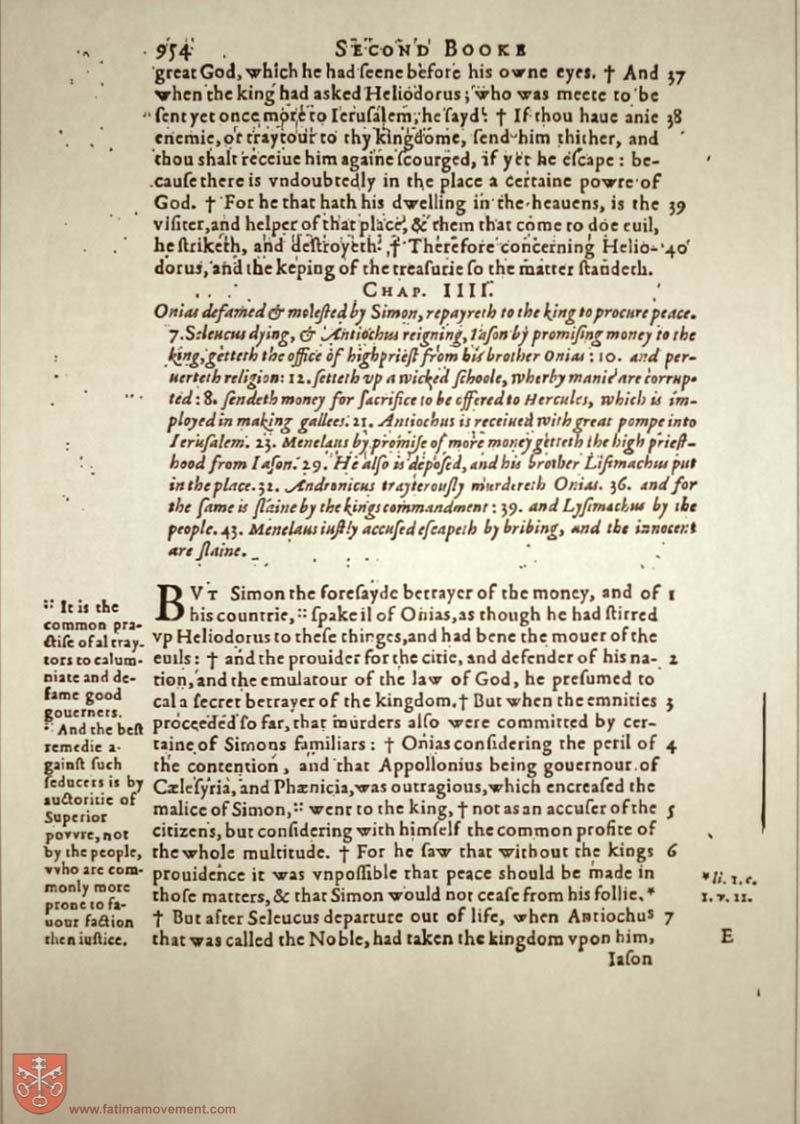 954 SECOND BOOKE
great God, which he had ſeene before his owne eyes. † And 37
when the king had asked Heliodorus, who was meete to be
ſent yet once more to Ieruſalem, he ſayd: † If thou haue anie 38
enemie, or traytour to thy kingdome, ſend him thither, and
thou shalt receiue him againe ſcourged, if yet he eſcape: be-
cauſe there is vndoubtedly in the place a certaine powre of
God. † For he that hath his dwelling in the heauens, is the 39
viſiter, and helper of that place, & them that come to doe euil,
he ſtriketh, and deſtroyeth. † Therefore concerning Helio- 40
dorus, and the keping of the treaſurie ſo the matter ſtandeth.
CHAP. IIII.
Onias defamed & moleſted by Simon, repayreth to the king to procure peace.
7. Seleucus dying, & Antiochus reigning, Iaſon by promiſing money to the
king, getteth the office of highprieſt from his brother Onias: 10. and per-
uerteth religion: 12. ſetteth vp a wicked ſchoole, wherby manie are corrup-
ted: 8. ſendeth money for ſacrifice to be offered to Hercules, which is im-
ployed in making gallees. 21. Antiochus is receiued with great pompe into
Ieruſalem. 23. Menelaus by promiſe of more money getteth the high prieſt-
hood from Iaſon. 29. He alſo is depoſed, and his brother Liſimachus put
in the place. 31. Andronicus trayterouſly murdereth Onias. 36. and for
the ſame is ſlaine by the kings commandment: 39. and Lyſimachus by the
people. 43. Menelaus iuſtly accuſed eſcapeth by bribing, and the innocent
are ſlaine.
BVT Simon the foreſayde betrayer of the money, and of 1
his countrie, :: ſpake il of Onias, as though he had ſtirred
vp Heliodorus to theſe thinges, and had bene the mouer of the
euils: † and the prouider for the citie, and defender of his na- 2
tion, and the emulatour of the law of God, he preſumed to
cal a ſecret betrayer of the kingdom. † But when the emnities 3
proceeded ſo far, that murders alſo were committed by cer-
taine of Simons familiars: † Onias conſidering the peril of 4
the contention, and that Appollonius being gouernour of
Cæleſyria, and Phænicia, was outragious, which encreaſed the
malice of Simon, :: went to the king, † not as an accuſer of the 5
citizens, but conſidering with himſelf the common profite of
the whole multitude. † For he ſaw that without the kings 6
prouidence it was vnpoſſible that peace should be made in
thoſe matters, & that Simon would not ceaſe from his follie. *
† But after Seleucus departure out of life, when Antiochus 7
that was called the Noble, had taken the kingdom vpon him,
Iaſon
:: It is the
common pra-
ctiſe of al tray-
tors to calum-
niate and de-
fame good
gouerners.
:: And the beſt
remedie a-
gainſt ſuch
ſeducers is by
auctoritie of
Superior
povvre, not
by the people,
vvho are com-
monly more
prone to fa-
uour faction
then iuſtice.
* li. 1. c.
1. v. 11.
E
www.fatimamovement.com